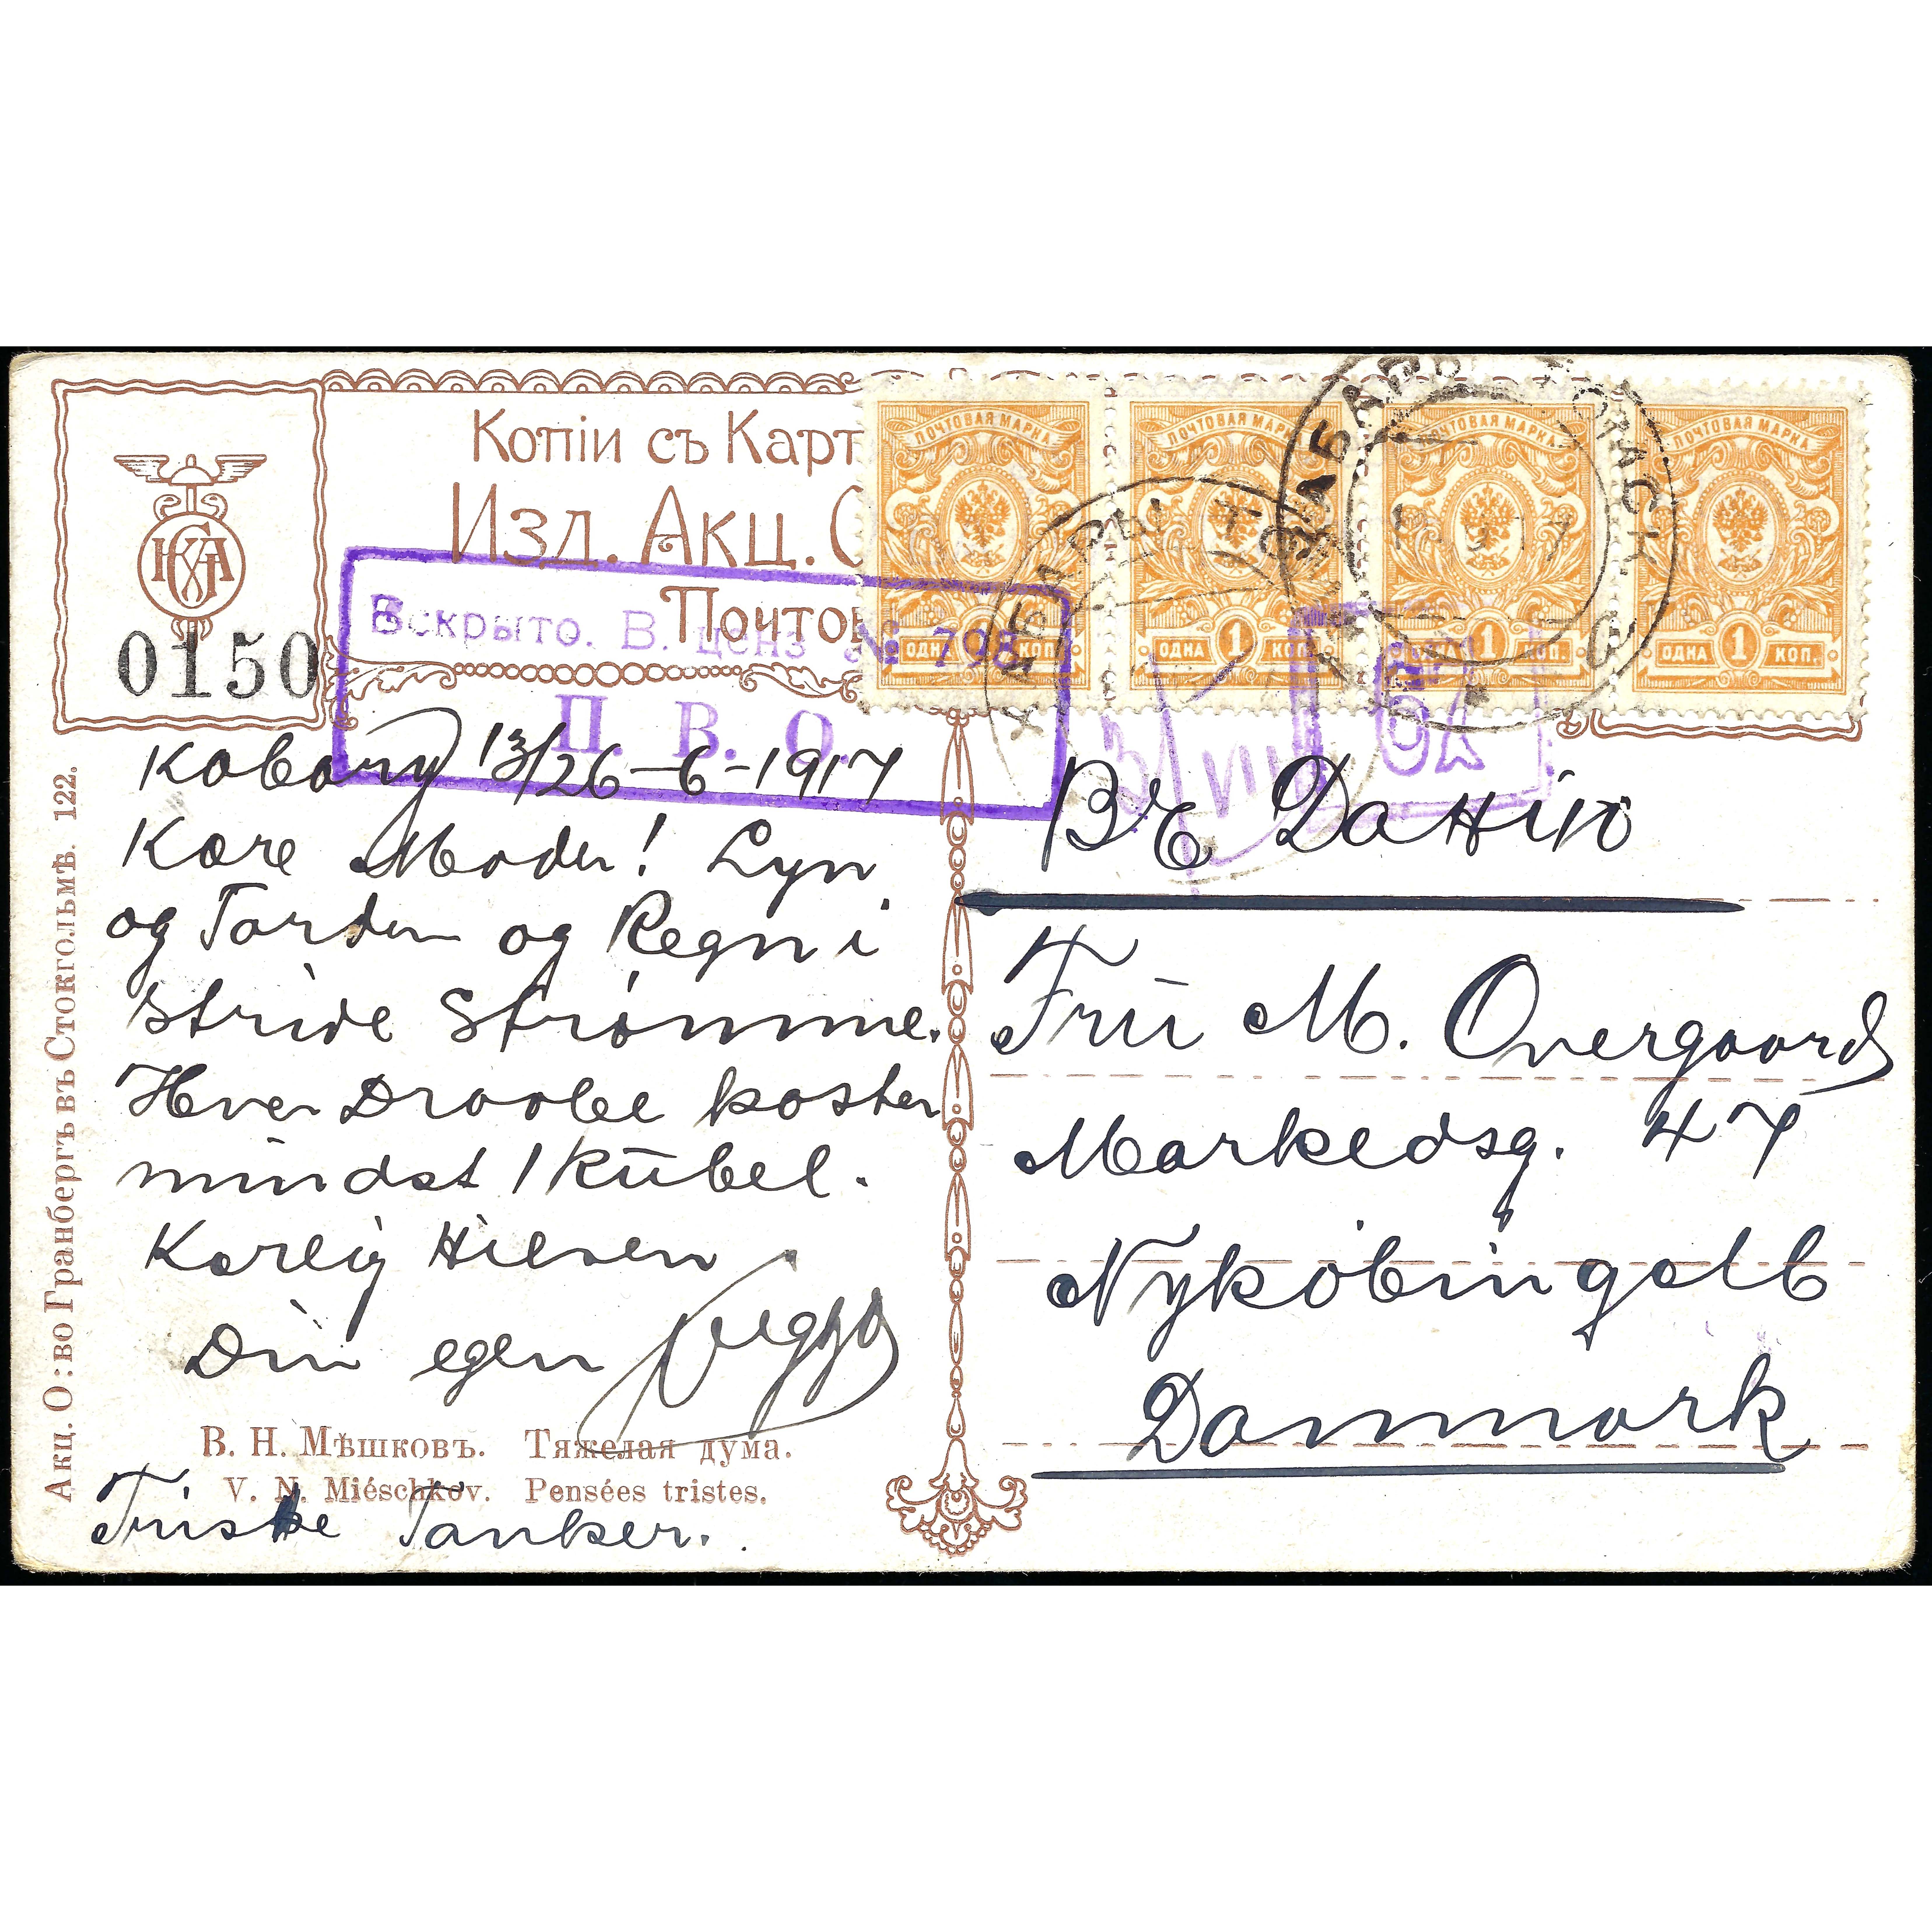 Копіи съ Карт
Изд. Акц. О
Почтов
0150
Вскрыто. В. ценз № 798
П. В. О.
ПОЧТОВАЯ МАРКА
ОДНА 1 КОП.
ПОЧТОВАЯ МАРКА
ОДНА 1 КОП.
ПОЧТОВАЯ МАРКА
ОДНА 1 КОП.
ПОЧТОВАЯ МАРКА
ОДНА 1 КОП.
13/26-6-1917
Kære Moder! Lyn
og Torden og Regn i
stride Strømme.
Hver Draabe koster
mindst 1 Rubel.
Kærlig Hilsen
Din egen Viggo
В. Н. Мѣшковъ. Тяжелая дума.
V. N. Miéschkov. Pensées tristes.
Triste Tanker.
Акц. О:во Гранбергъ въ Стокгольмѣ. 122.
Въ Данію
Fru M. Overgaard
Markedsg. 47
Nykøbing
Danmark